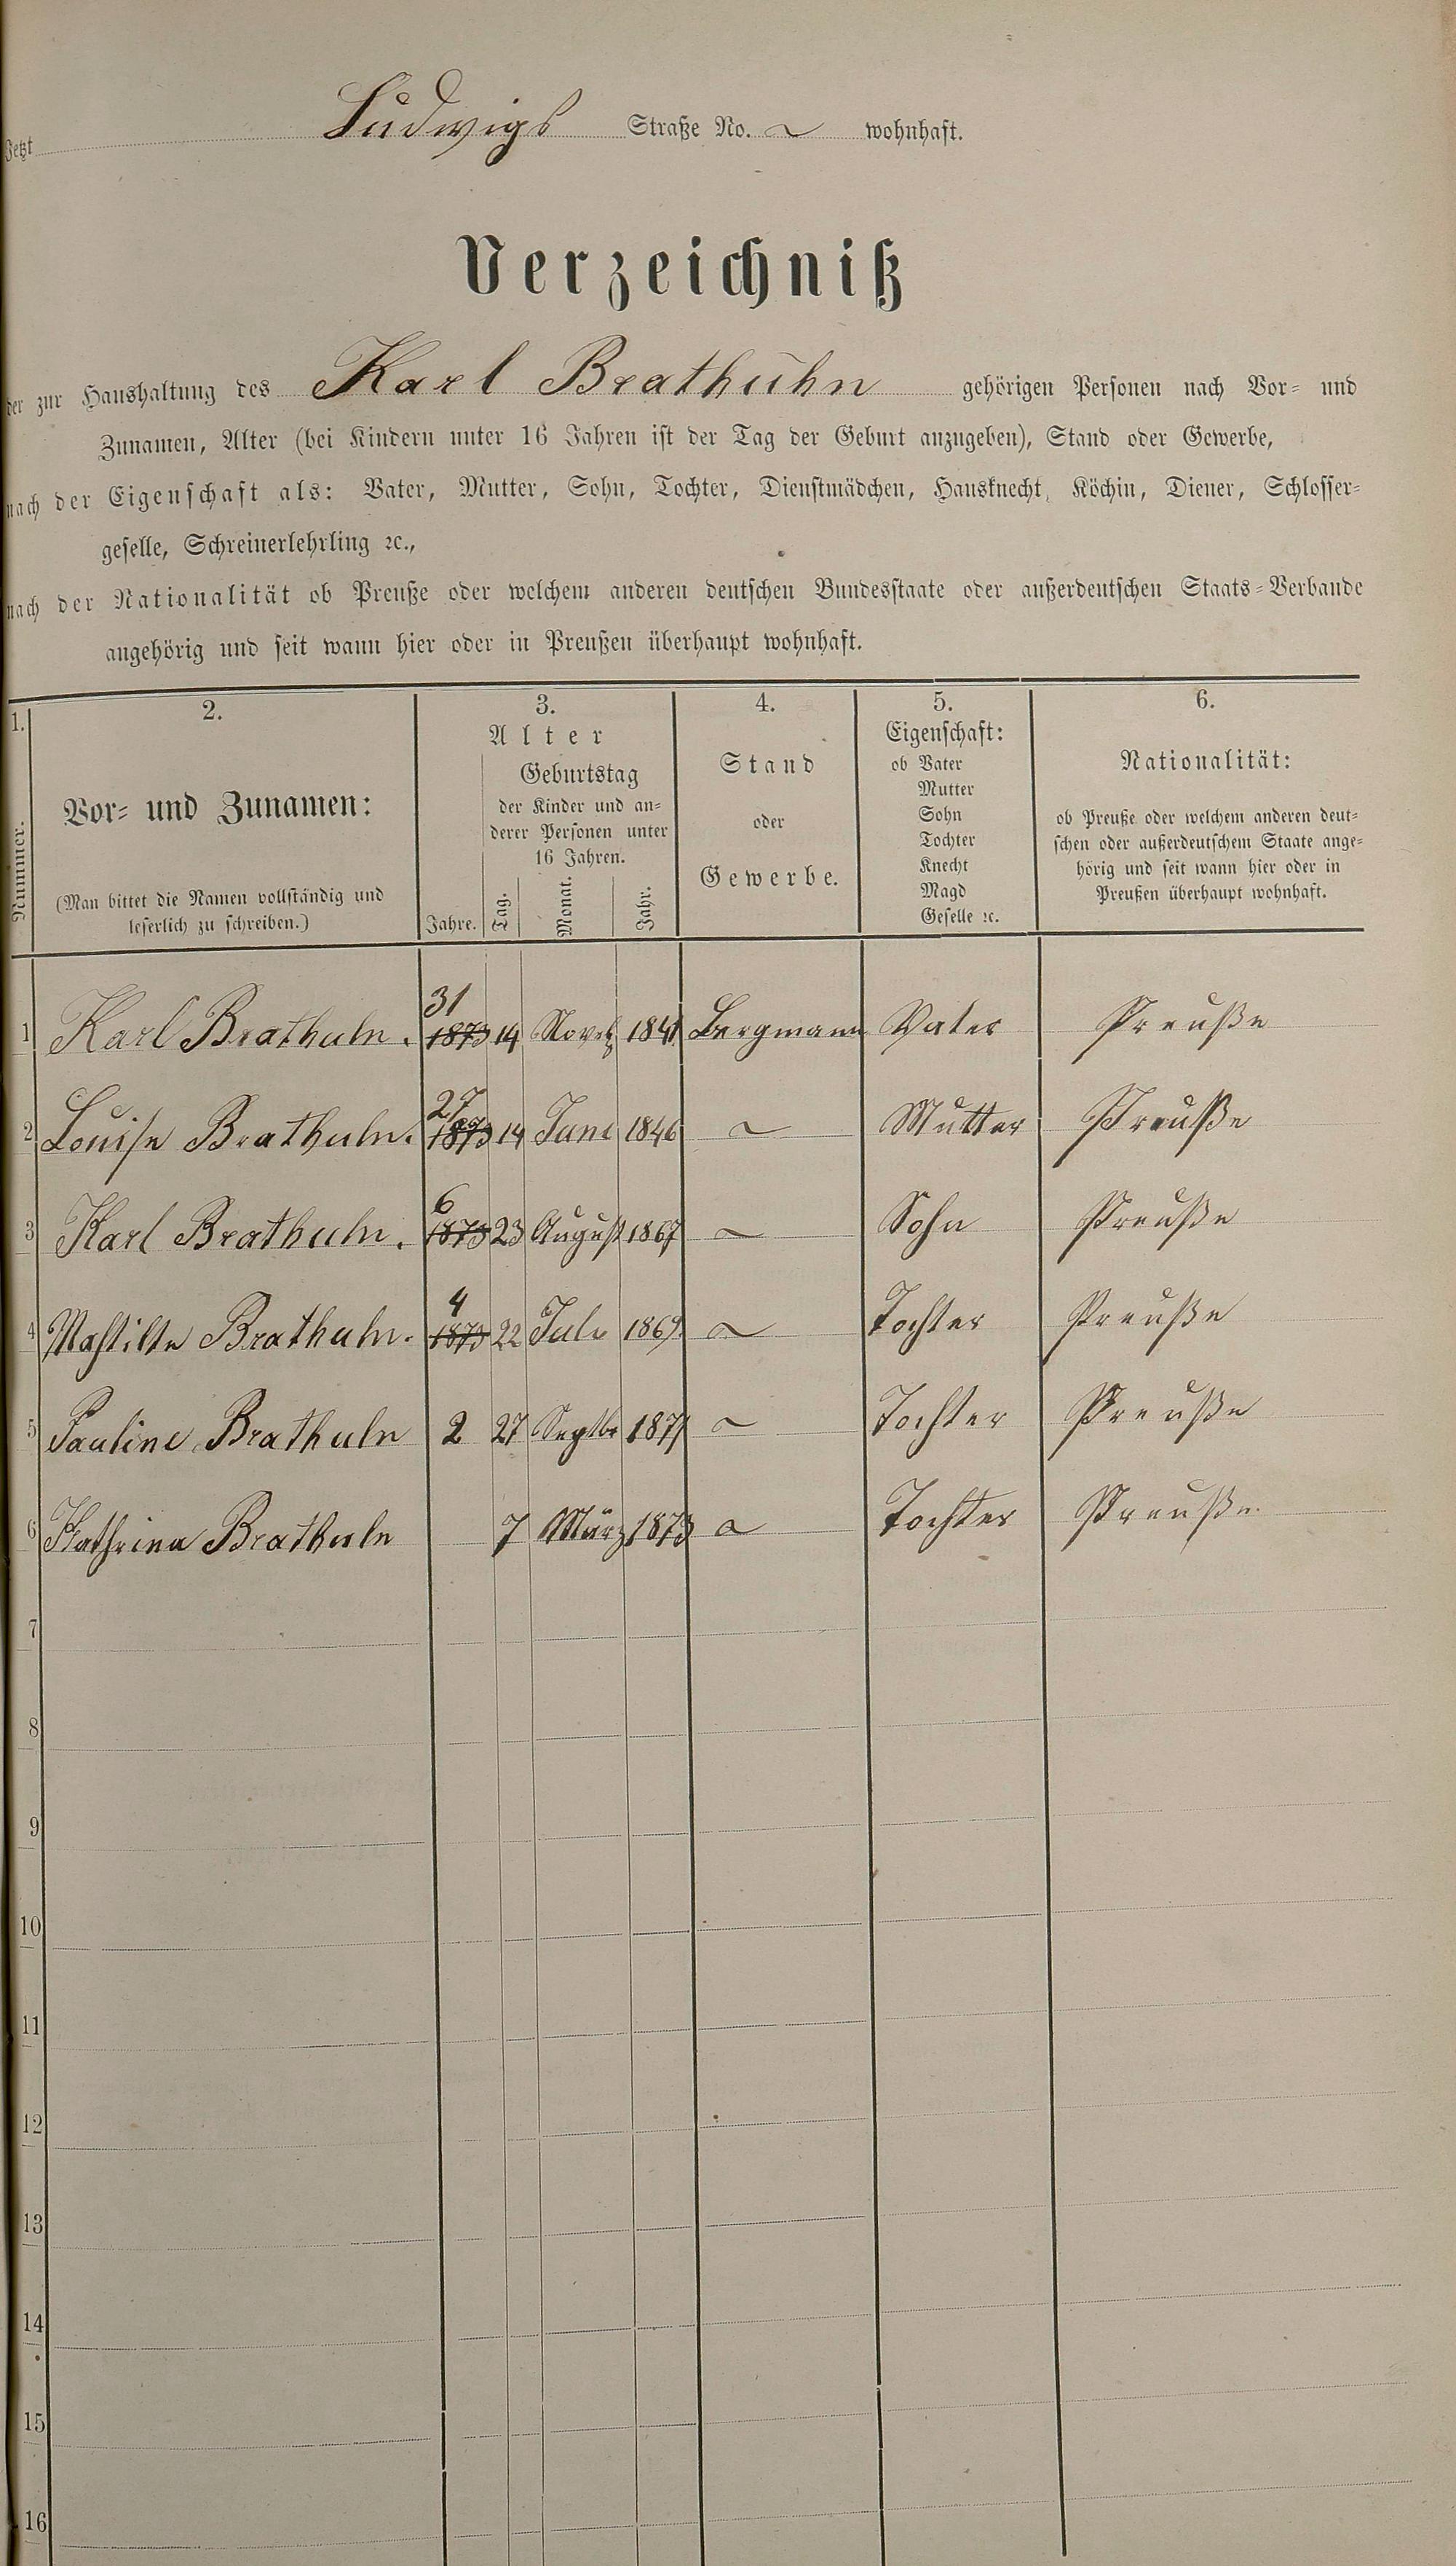 Jetzt Ludwigs Straße No. wohnhaft.
Verzeichniß
der zur Haushaltung des Karl Brathuhn gehörigen Personen nach Vor- und
Zunamen, Alter (bei Kindern unter 16 Jahren ist der Tag der Geburt anzugeben), Stand oder Gewerbe,
nach der Eigenschaft als: Vater, Mutter, Sohn, Tochter, Dienstmädchen, Hausknecht, Köchin, Diener, Schlosser-
geselle, Schreinerlehrling ꝛc.,
nach der Nationalität ob Preuße oder welchem anderen deutschen Bundesstaate oder außerdeutschen Staats-Verbande
angehörig und seit wann hier oder in Preußen überhaupt wohnhaft.
1.
Nummer.
2.
Vor- und Zunamen:
(Man bittet die Namen vollständig und
leserlich zu schreiben.)
3.
Alter
Geburtstag
der Kinder und an-
derer Personen unter
16 Jahren.
Jahre. Tag. Monat. Jahr.
4.
Stand
oder
Gewerbe.
5.
Eigenschaft:
ob Vater
Mutter
Sohn
Tochter
Knecht
Magd
Geselle ꝛc.
6.
Nationalität:
ob Preuße oder welchem anderen deut-
schen oder außerdeutschem Staate ange-
hörig und seit wann hier oder in
Preußen überhaupt wohnhaft.
31
1 Karl Brathuhn. 1873 14 1841 Bergmann Vater Preuße
27
2 Louise Brathuhn. 1873 14 Juni 1846 Mutter Preuße
6
3 Karl Brathuhn. 1873 23 August 1867 Sohn Preuße
4
4 Brathuhn. 1873 22 Juli 1869 Tochter Preuße
5 Pauline Brathuhn 2 27 Septbr 1871 Tochter Preuße
6 Kathrina Brathuhn 7 März 1873 Tochter Preuße
7
8
9
10
11
12
13
14
15
16